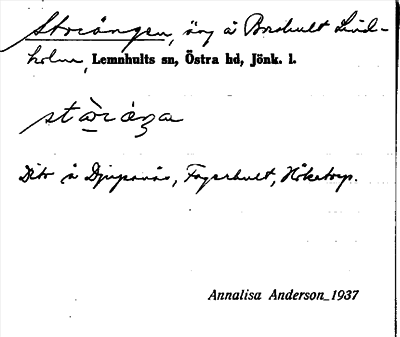 Storängen, äng å Boshult Lind-
holm, Lemnhults sn, Östra hd, Jönk. l.
Dito å Djupanäs, Fagerhult, Hökatorp.
Annalisa Anderson 1937